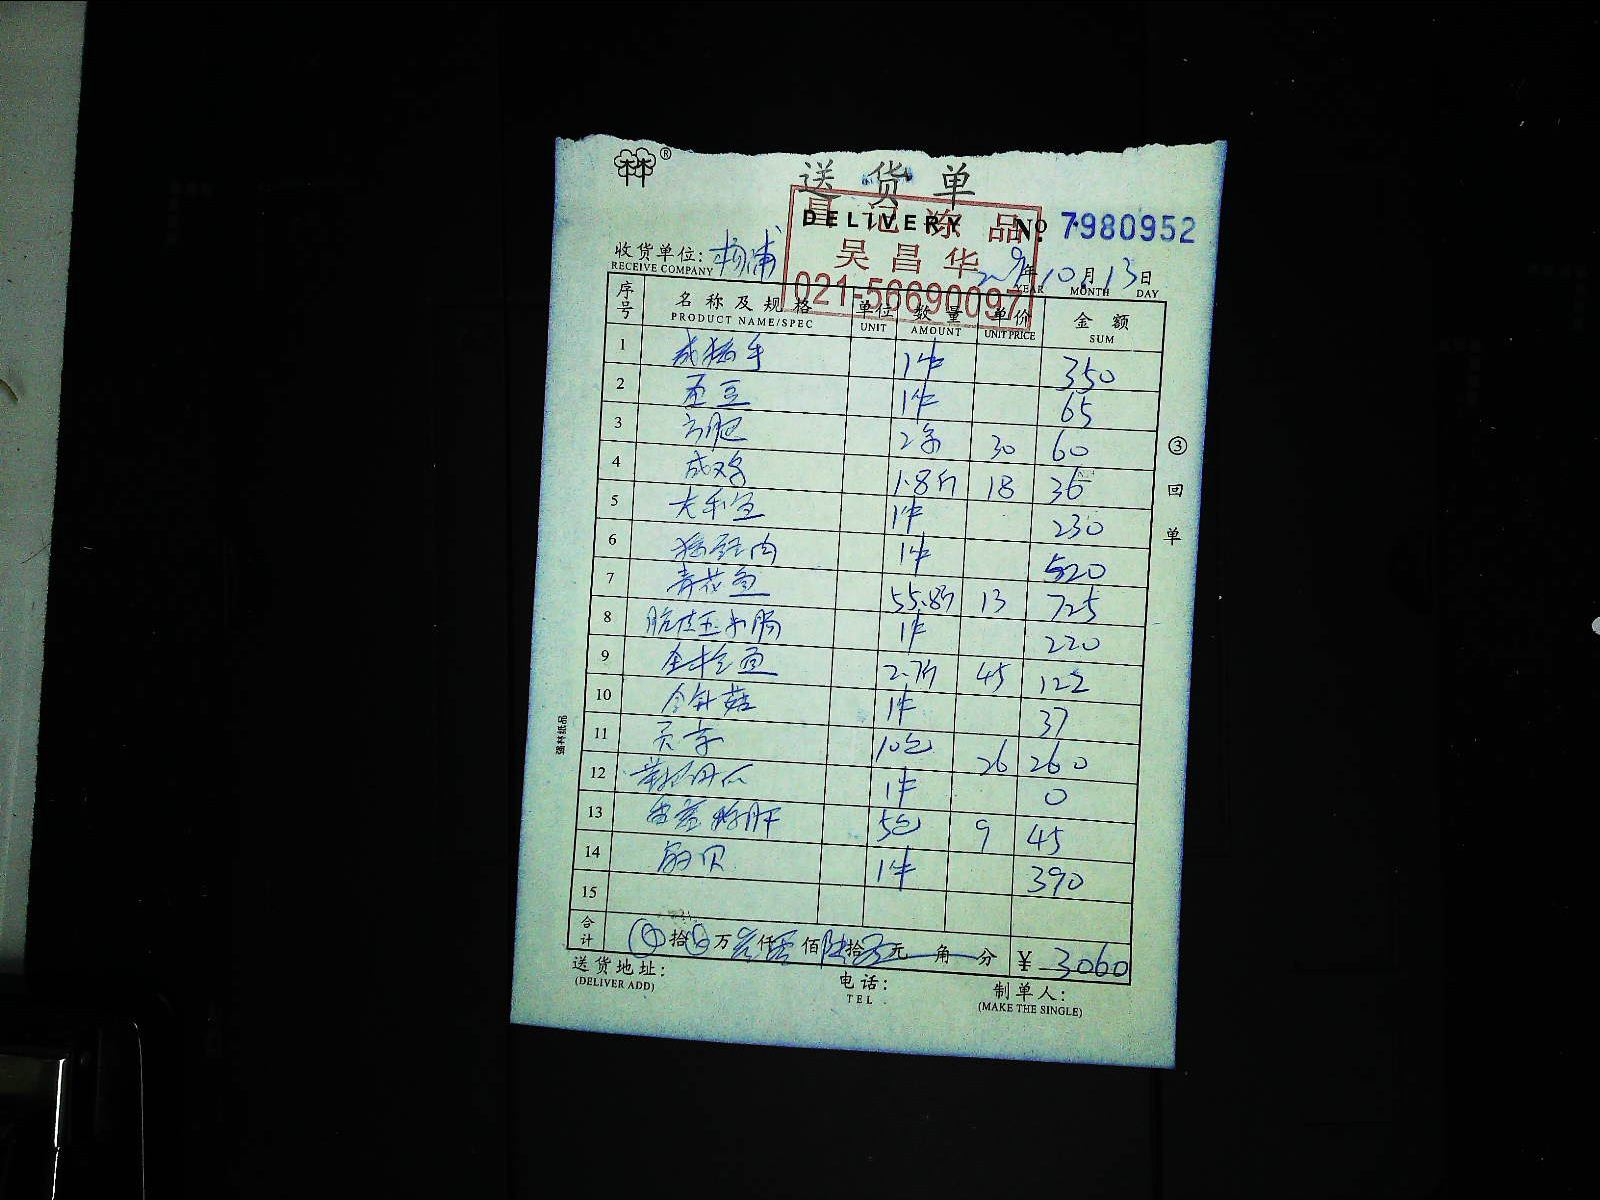 林®
送 货 单
DELIVERY No. 7980952
昌记冻品
吴昌华
021-56690097
收货单位: 杨浦
RECEIVE COMPANY
9年10月13日
YEAR MONTH DAY
序号 名称及规格 单位 数量 单价 金额
PRODUCT NAME/SPEC UNIT AMOUNT UNIT PRICE SUM
1 咸猪手 1件 350
2 1件 65
3 方肥 2条 30 60
4 咸鸡 1.8斤 18 36
5 1件 230
6 1件 520
7 青花鱼 55.8斤 13 725
8 脆皮玉米肠 1件 220
9 金枪鱼 2.7斤 45 122
10 金针菇 1件 37
11 贡丸 10包 26 260
12 1件 0
13 5包 9 45
14 扇贝 1件 390
15
合计 拾 万 仟 佰 陆拾 元 角 分 ¥ 3060
送货地址:
(DELIVER ADD)
电话:
TEL
制单人:
(MAKE THE SINGLE)
③回单
强林纸品